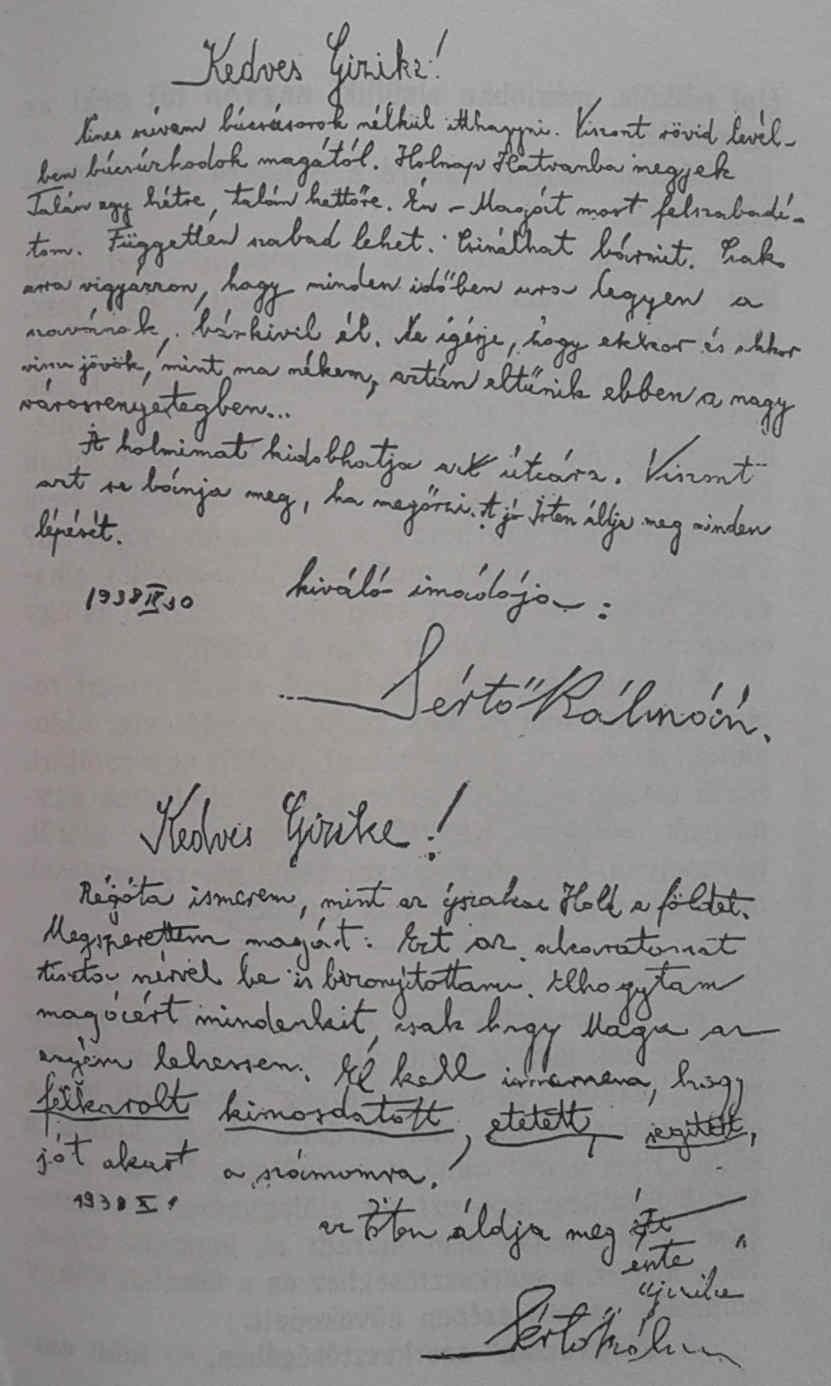 Kedves Gizike!
Nincs szívem búcsúsorok nélkül itthagyni. Viszont rövid levél-
ben búcsúzkodok magától. Holnap Hatvanba megyek
Talán egy hétre, talán kettőre. Én – Magát most felszabadí-
tom. Független szabad lehet. Csinálhat bármit. Csak
arra vigyázzon, hogy minden időben ura legyen a
szavának, bárkivel él. Ne ígérje, hogy ekkor és akkor
vissza jövök, mint ma nékem, aztán eltűnik ebben a nagy
városrengetegben...
A holmimat kidobhatja az útcára. Viszont
azt se bánja meg, ha megőrzi. A jó Isten áldja meg minden
lépését.
1938 10
kiváló imádója:
Sértő Kálmán.
Kedves Gizike!
Régóta ismerem, mint az éjszakai Hold a földet.
Megszerettem magát. Ezt az akaratomat
tiszta szívvel be is bizonyítottam. Elhagytam
magáért mindenkit, csak hogy Maga az
enyém lehessen. El kell ismernem, hogy
félkarolt kimosdatott, etetett, segített,
jót akart a számomra.
1938 X 1
az Isten áldja meg
érte
Sértő Kálmán